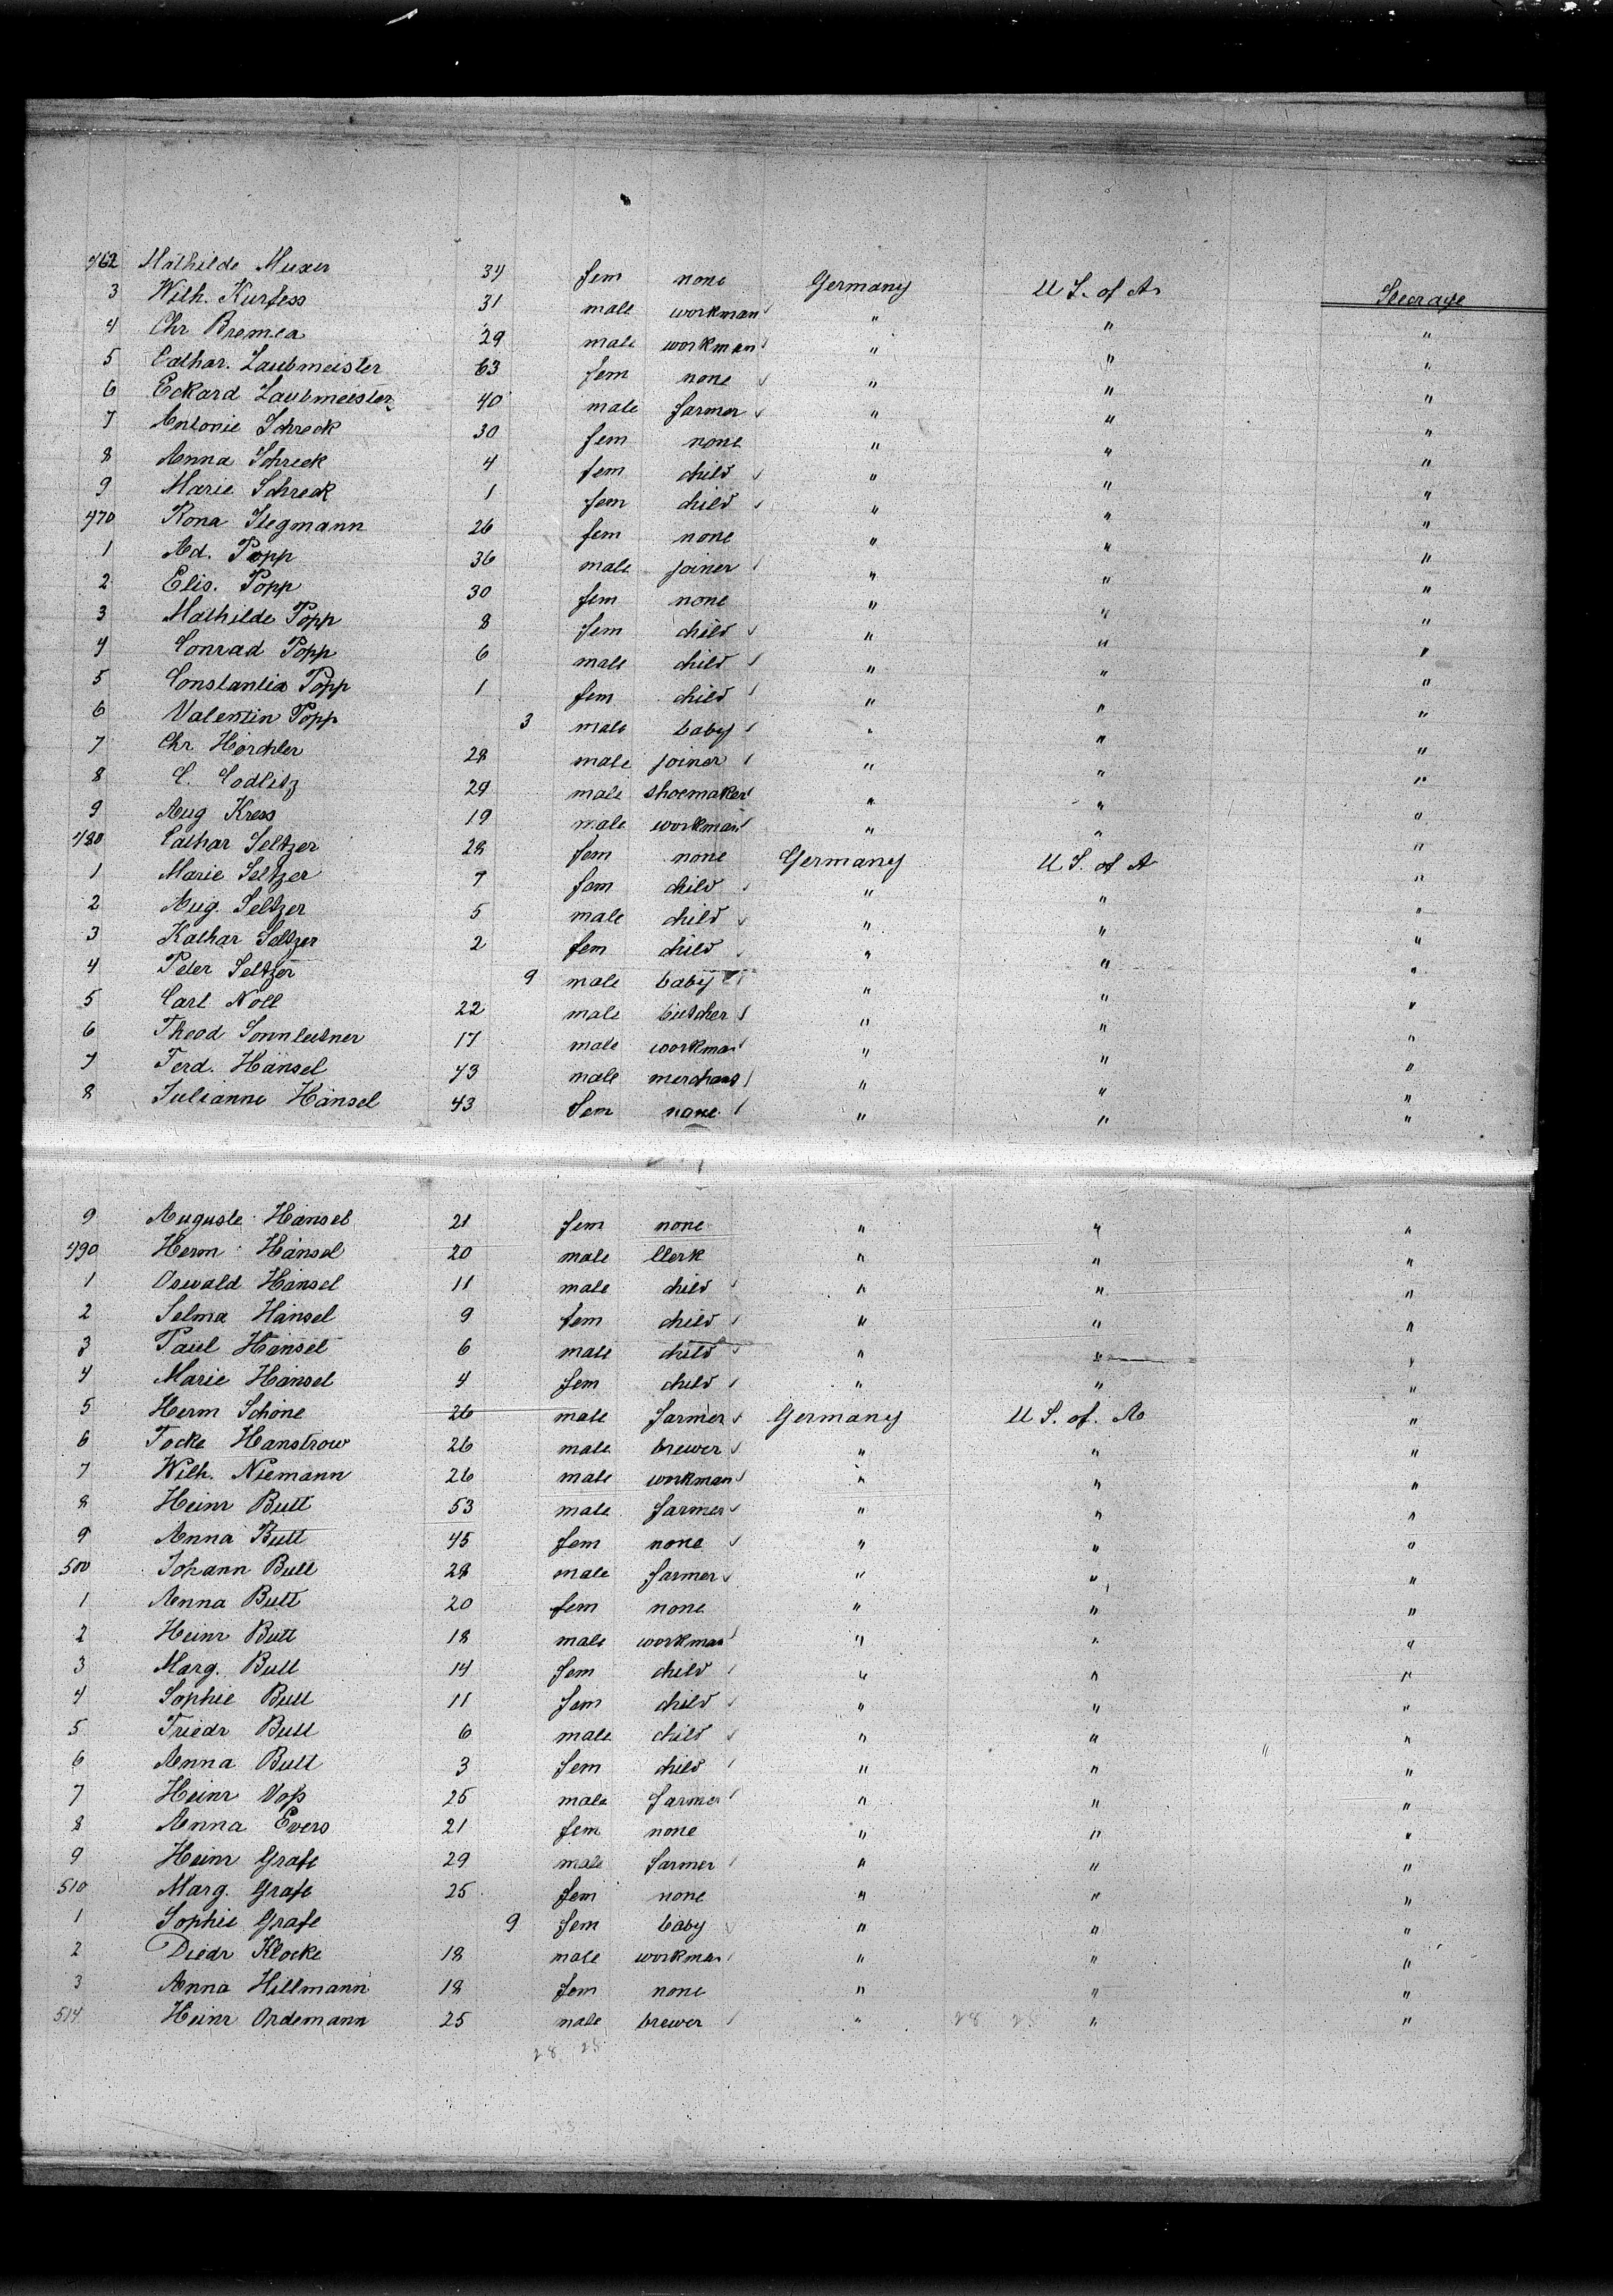 462 Mathilde Muxer 34 fem none Germany U S. of A. Steerage
3 Wilh. Kurfess 31 male workman " " "
4 Chr Bremer 29 male workman " " "
5 Cathar. Laubmeister 63 fem none " " "
6 Eckard Laubmeister 40 male farmer " " "
7 Antonie Schreck 30 fem none " " "
8 Anna Schreck 4 fem child " " "
9 Marie Schreck 1 fem child " " "
470 Rosa Stegmann 26 fem none " " "
1 Ad. Popp 36 male joiner " " "
2 Elis. Popp 30 fem none " " "
3 Mathilde Popp 8 fem child " " "
4 Conrad Popp 6 male child " " "
5 Constantia Popp 1 fem child " " "
6 Valentin Popp 3 male baby " " "
7 Chr Hörchler 28 male joiner " " "
8 C. Codlitz 29 male shoemaker " " "
9 Aug Kress 19 male workman " " "
480 Cathar Seltzer 28 fem none Germany U S. of A "
1 Marie Seltzer 7 fem child " " "
2 Aug. Seltzer 5 male child " " "
3 Kathar Seltzer 2 fem child " " "
4 Peter Seltzer 9 male baby " " "
5 Carl Noll 22 male butcher " " "
6 Theod Sonnleitner 17 male workman " " "
7 Ferd. Hänsel 43 male merchand " " "
8 Julianne Hänsel 43 fem none " " "
9 Auguste Hänsel 21 fem none " " "
490 Herm Hänsel 20 male Clerk " " "
1 Oswald Hänsel 11 male child " " "
2 Selma Hänsel 9 fem child " " "
3 Paul Hänsel 6 male child " " "
4 Marie Hänsel 4 fem child " " "
5 Herm Schöne 26 male farmer Germany U S. of. A "
6 Focke Hanstrow 26 male brewer " " "
7 Wilh. Niemann 26 male workman " " "
8 Heinr Butt 53 male farmer " " "
9 Anna Butt 45 fem none " " "
500 Johann Butt 28 male farmer " " "
1 Anna Butt 20 fem none " " "
2 Heinr Butt 18 male workman " " "
3 Marg. Butt 14 fem child " " "
4 Sophie Butt 11 fem child " " "
5 Friedr Butt 6 male child " " "
6 Anna Butt 3 fem child " " "
7 Heinr Voß 25 male farmer " " "
8 Anna Evers 21 fem none " " "
9 Heinr Grafe 29 male farmer " " "
510 Marg. Grafe 25 fem none " " "
1 Sophie Grafe 9 fem baby " " "
2 Diedr Klocke 18 male workman " " "
3 Anna Hillmann 18 fem none " " "
514 Heinr Ordemann 25 male brewer " 28 28 " "
28 28